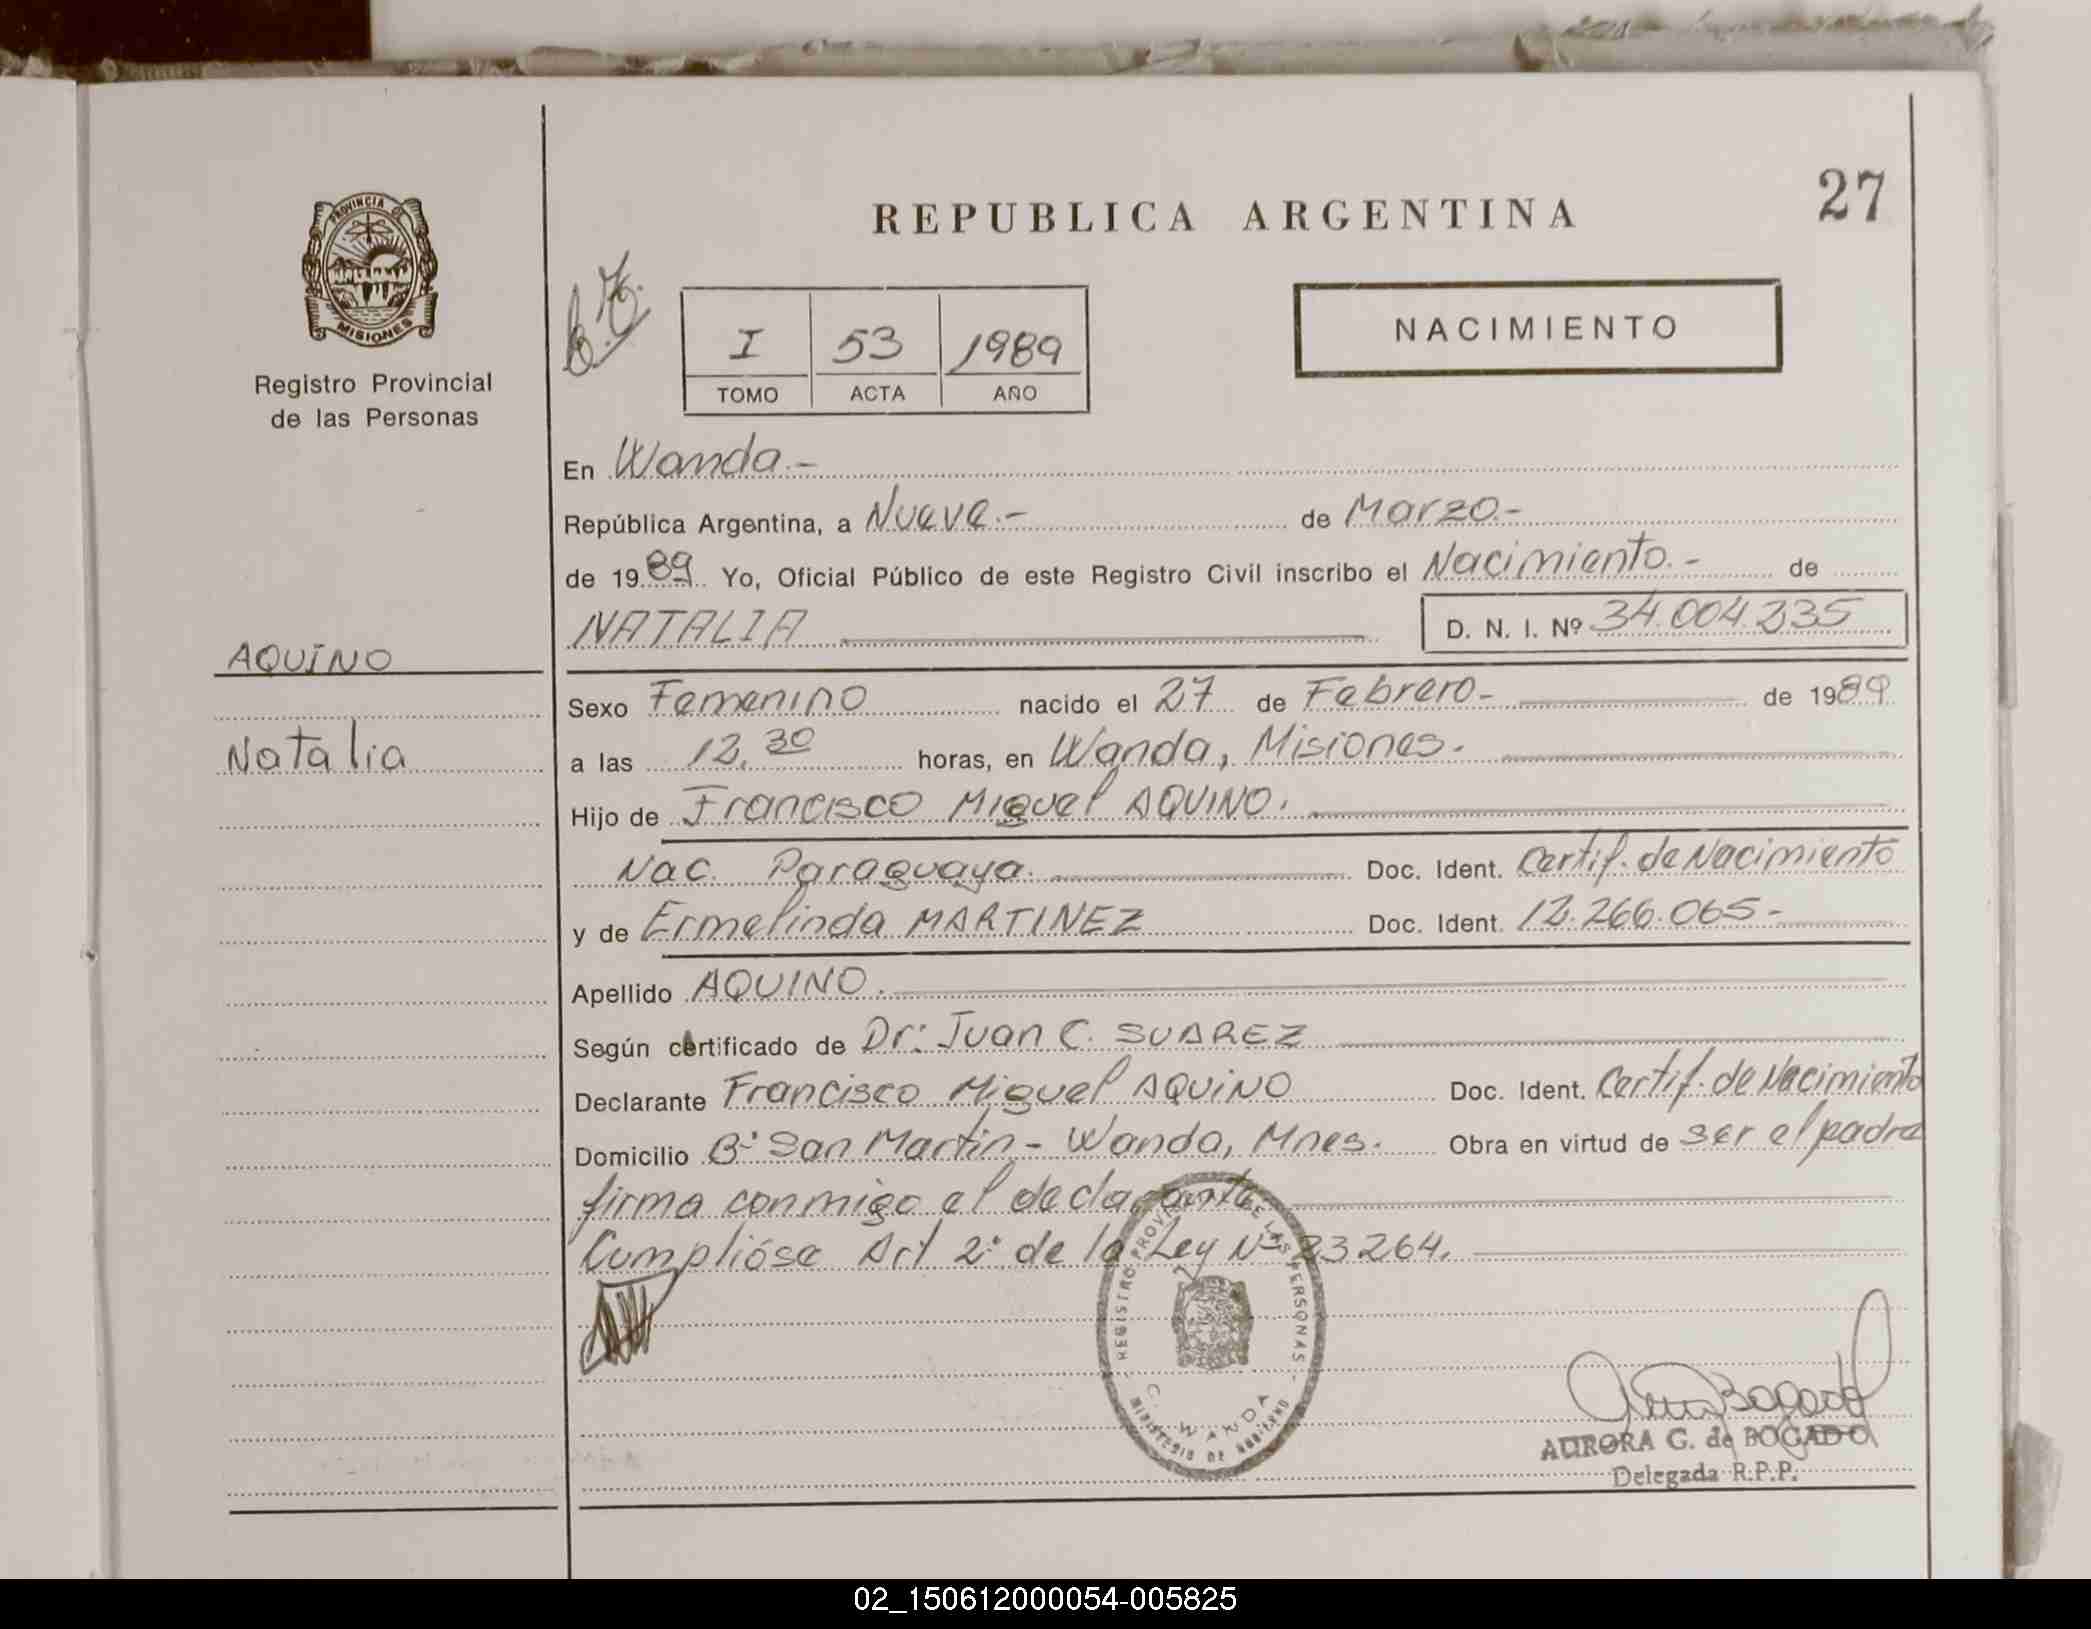 27
REPUBLICA ARGENTINA
PROVINCIA DE
MISIONES
Registro Provincial
de las Personas
I 53 1989
TOMO ACTA AÑO
NACIMIENTO
En Wanda.-
República Argentina, a Nueve.- de Marzo.-
de 1989. Yo, Oficial Público de este Registro Civil inscribo el Nacimiento.- de
NATALIA D. N. I. Nº 34.004.335
AQUINO
Natalia
Sexo Femenino nacido el 27 de Febrero- de 1989
a las 12,30 horas, en Wanda, Misiones.
Hijo de Francisco Miguel AQUINO.
Nac. Paraguaya. Doc. Ident. Certif. de Nacimiento
y de Ermelinda MARTINEZ Doc. Ident. 12.266.065-
Apellido AQUINO.
Según certificado de Dr: Juan C. SUAREZ
Declarante Francisco Miguel AQUINO Doc. Ident. Certif. de Nacimiento
Domicilio Bº San Martín - Wanda, Mnes. Obra en virtud de ser el padre
firma conmigo el declarante
Cumplióse Art 2º de la Ley Nº 23.264.
REGISTRO PROVINCIAL DE LAS PERSONAS
WANDA
MINISTERIO DE GOBIERNO
AURORA G. de BOGADO
Delegada R.P.P.
02_150612000054-005825